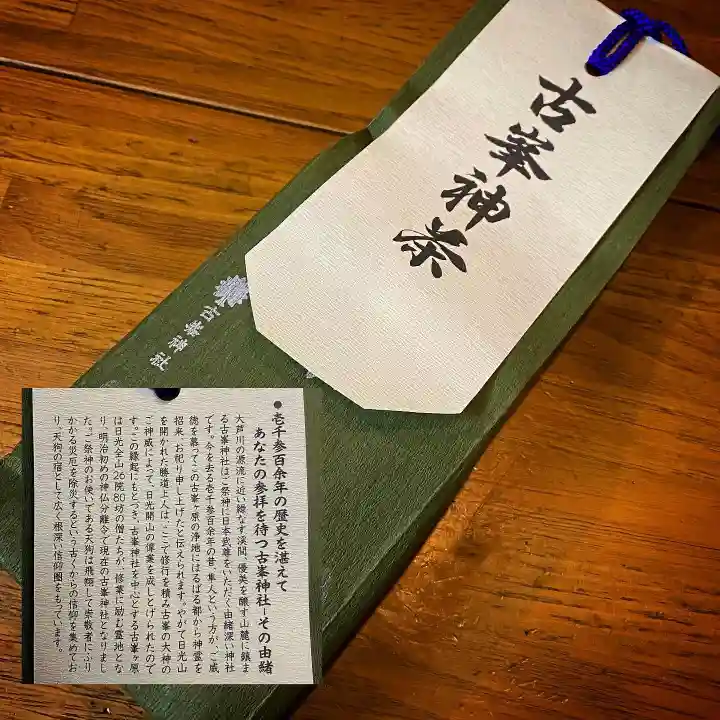 古峯神茶
古峯神社
●壱千参百余年の歴史を湛えて
あなたの参拝を待つ古峯神社-その由緒
大芦川の源流に近い綾なす渓間、優美を醸す山麓に鎮ま
る古峯神社はご祭神に日本武尊をいただく由緒深い神社
です。今を去る壱千参百余年の昔、隼人という方が、ご威
徳を慕ってこの古峯ヶ原の浄地にはるばる都から神霊を
招来、お祀り申し上げたと伝えられます。やがて日光山
を開かれた勝道上人は、ここで修行を積み古峯の大神の
ご神威によって、日光開山の偉業を成しとげられたので
す。この縁起にもとづき、古峯神社を中心とする古峯ヶ原
は日光全山26院80坊の僧たちが、修業に励む霊地とな
り、明治初めの神仏分離令で現在の古峯神社となりまし
た。ご祭神のお使いである天狗は飛翔して崇敬者にふり
かかる災厄を除災するという古くからの信仰を集めてお
り、天狗の宿として広く根深い信仰圏をもっています。